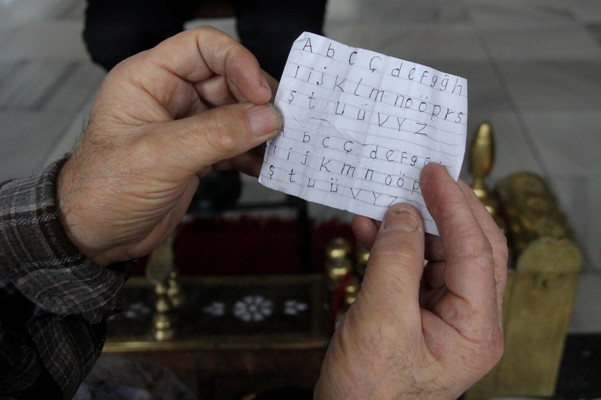 A b c ç d e f g ğ h
ı i j k l m n o ö p r s
ş t u ü v y z
b c ç d e f g
i j k m n o ö p
ş t u ü v y z